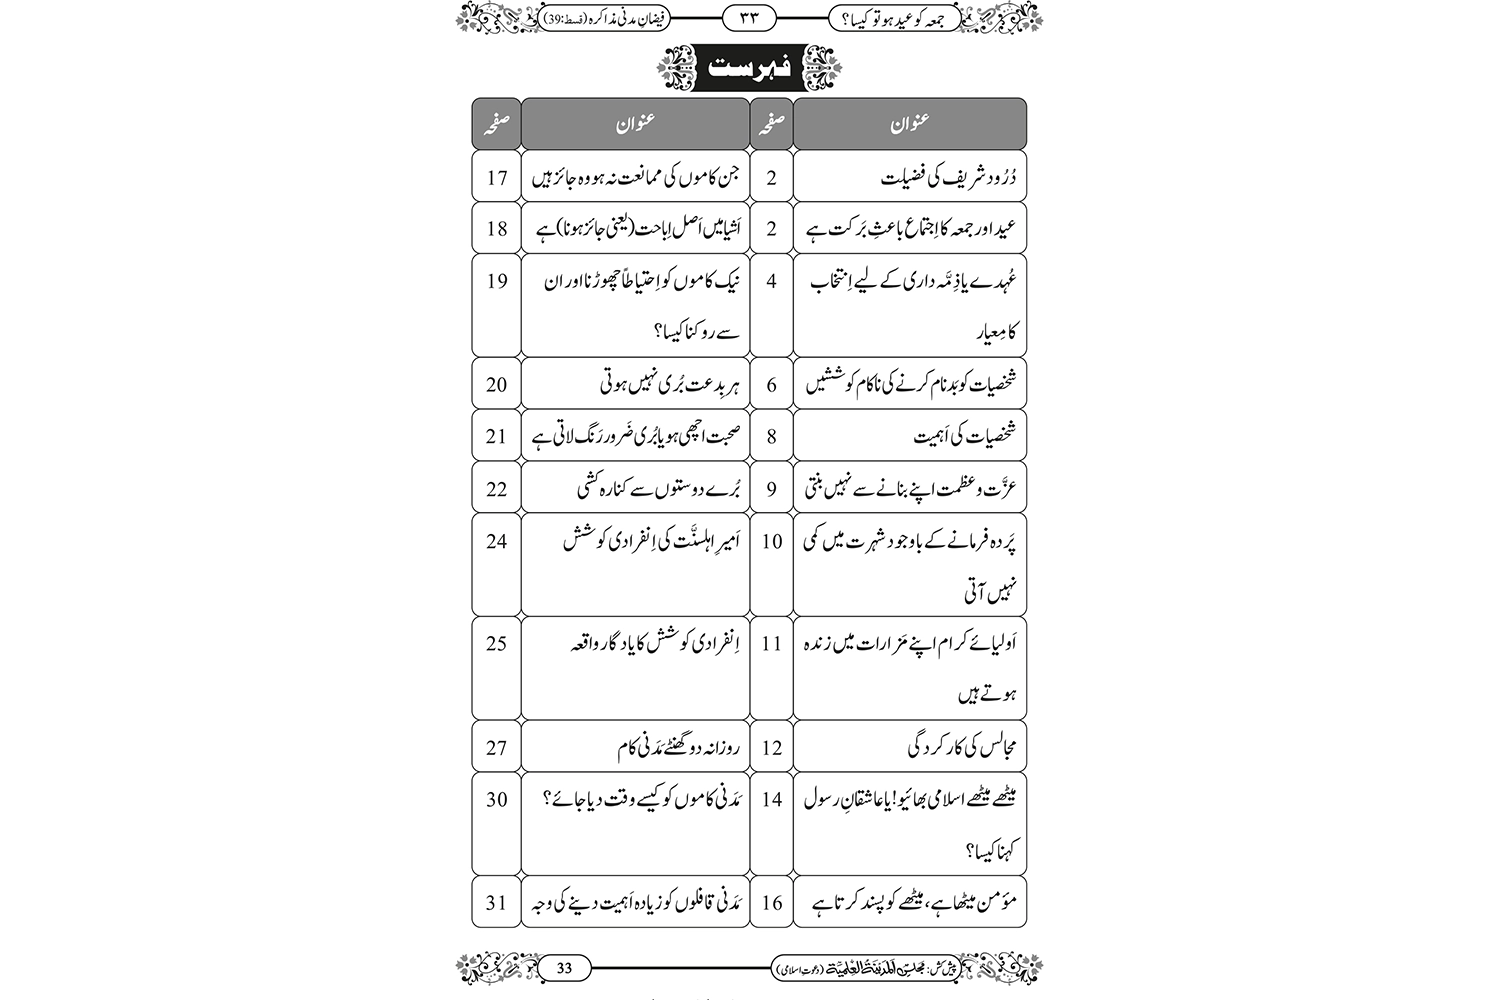 جمعہ کو عید ہو تو کیسا؟ ۳۳ فیضانِ مدنی مذاکرہ (قسط:39)
فہرست
عنوان صفحہ عنوان صفحہ
دُرُود شریف کی فضیلت 2 جن کاموں کی ممانعت نہ ہو وہ جائز ہیں 17
عید اور جمعہ کا اِجتماع باعثِ بَرکت ہے 2 اَشیا میں اَصل اِباحت (یعنی جائز ہونا) ہے 18
عُہدے یا ذِمَّہ داری کے لیے اِنتخاب 4 نیک کاموں کو اِحتیاطاً چھوڑنا اور ان 19
کا مِعیار سے روکنا کیسا؟
شخصیات کو بَدنام کرنے کی ناکام کوششیں 6 ہر بِدعت بُری نہیں ہوتی 20
شخصیات کی اَہمیت 8 صحبت اچھی ہو یا بُری ضَرور رَنگ لاتی ہے 21
عزَّت و عظمت اپنے بنانے سے نہیں بنتی 9 بُرے دوستوں سے کنارہ کشی 22
پَردہ فرمانے کے باوجود شہرت میں کمی 10 اَمیرِ اہلسنَّت کی اِنفرادی کوشش 24
نہیں آتی
اَولیائے کرام اپنے مَزارات میں زندہ 11 اِنفرادی کوشش کا یادگار واقعہ 25
ہوتے ہیں
مجالس کی کارکردگی 12 روزانہ دو گھنٹے مَدَنی کام 27
میٹھے میٹھے اسلامی بھائیو! یا عاشقانِ رسول 14 مَدَنی کاموں کو کیسے وقت دیا جائے؟ 30
کہنا کیسا؟
مؤمن میٹھا ہے، میٹھے کو پسند کرتا ہے 16 مَدَنی قافلوں کو زیادہ اَہمیت دینے کی وجہ 31
پیش کش: مجلس المدینۃ العلمیۃ (دعوتِ اسلامی) 33